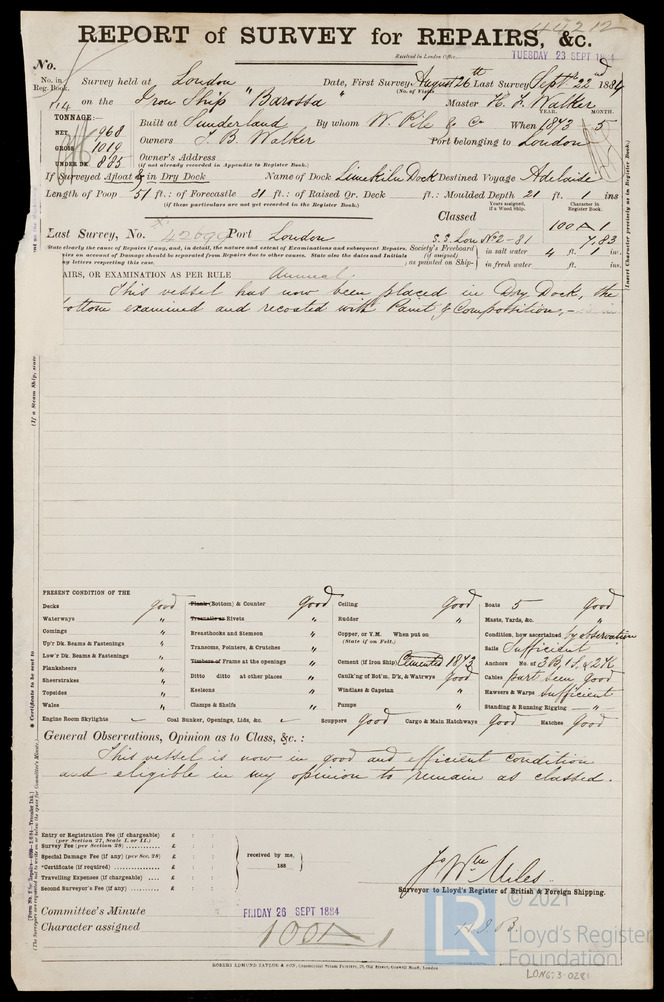 44212
REPORT of SURVEY for REPAIRS, &c.
Received in London Office
TUESDAY 23 SEPT 1884
No.
No. in Reg. Book. Survey held at London Date, First Survey August 26th Last Survey Sept 22nd 1884
(No. of Visits
on the Iron Ship "Barossa" Master H. F. Walker
TONNAGE:— Built at Sunderland By whom W. Pile & Co When 1873 5
YEAR. MONTH.
NET 968
GROSS 1019 Owners T. B. Walker Port belonging to London
UNDER DK. 885 Owner's Address
(if not already recorded in Appendix to Register Book.)
If Surveyed Afloat & in Dry Dock Name of Dock Limekiln Dock Destined Voyage Adelaide
Length of Poop 51 ft.: of Forecastle 31 ft.: of Raised Qr. Deck ft.: Moulded Depth 21 ft. 1 ins
(if these particulars are not yet recorded in the Register Book.)
Years assigned, if a Wood Ship. Character in Register Book.
Classed 100 A 1
Last Survey, No. 42699 Port London S.S. Lon No2-81 7,83
State clearly the cause of Repairs if any, and, in detail, the nature and extent of Examinations and subsequent Repairs.
on account of Damage should be separated from Repairs due to other causes. State also the dates and Initials
letters respecting this case.
Society's Freeboard (if assigned) as painted on Ship— in salt water 4 ft. 1 in.
in fresh water ft. in.
AIRS, OR EXAMINATION AS PER RULE Annual.
This vessel has now been placed in Dry Dock, the
bottom examined and recoated with Paint & Composition,—
PRESENT CONDITION OF THE
Decks good
Waterways "
Comings "
Up'r Dk. Beams & Fastenings "
Low'r Dk. Beams & Fastenings "
Planksheers "
Sheerstrakes "
Topsides "
Wales "
Engine Room Skylights
Plank (Bottom) & Counter good
Treenails or Rivets "
Breasthooks and Stemson "
Transoms, Pointers, & Crutches "
Timbers or Frame at the openings "
Ditto ditto at other places "
Keelsons "
Clamps & Shelfs "
Coal Bunker, Openings, Lids, &c.
Ceiling good
Rudder "
Copper, or Y.M. When put on
(State if on Felt.)
Cement (if Iron Ship) Cemented 1873
Caulk'ng of Bot'm, D'k, & Watrwys good
Windlass & Capstan "
Pumps "
Scuppers good Cargo & Main Hatchways good Hatches good
Boats 5 good
Masts, Yards, &c. "
Condition, how ascertained by observation
Sails Sufficient
Anchors No. of 3B, 1S, & 2K
Cables part seen good
Hawsers & Warps sufficient
Standing & Running Rigging — " —
General Observations, Opinion as to Class, &c.:
This vessel is now in good and efficient condition
and eligible in my opinion to remain as classed.
Entry or Registration Fee (if chargeable) £ : :
(per Section 27, Scale I. or II.)
Survey Fee (per Section 28) £ : :
Special Damage Fee (if any) (per Sec. 28) £ : :
*Certificate (if required) £ : :
Travelling Expenses (if chargeable) £ : :
Second Surveyor's Fee (if any) £ : :
received by me,
188
Jos Wm Miles
Surveyor to Lloyd's Register of British & Foreign Shipping.
Committee's Minute FRIDAY 26 SEPT 1884
Character assigned 100A1
ROBERT EDMUND TAYLOR & SON, Commercial Steam Printers, 19, Old Street, Goswell Road, London
(If a Steam Ship, state
* Certificate to be sent to
(The Surveyors are requested not to write on or below the space for Committee's Minute.)
(Insert Character precisely as in Register Book.)
© 2021
LR
Lloyd's Register
Foundation
LON6:3-0281